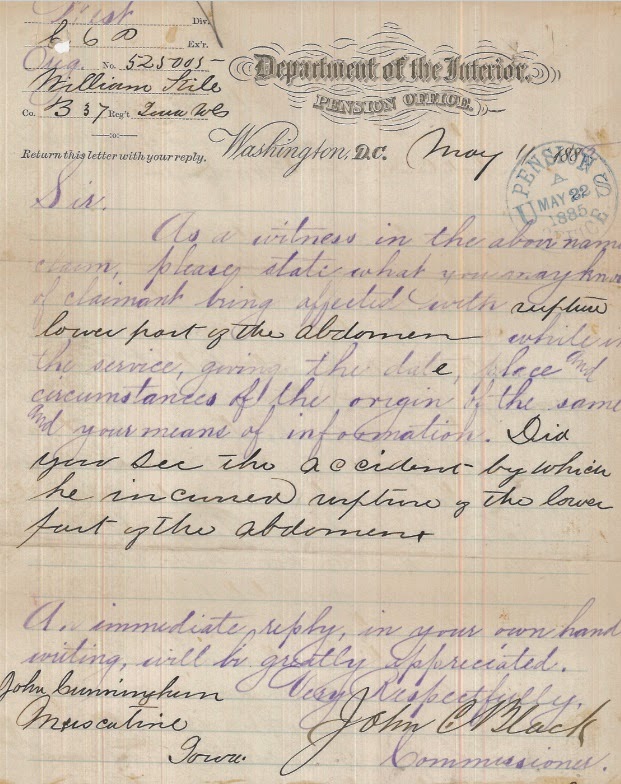 West Div.
C C P Ex'r.
Orig. No. 525005
William Kile
Co. B 37 Reg't Iowa Vols
Department of the Interior,
PENSION OFFICE.
Return this letter with your reply.
Washington, D.C. May 11 188
U.S. PENSION OFFICE
MAY 22
1885
Sir.
As a witness in the above name
claim, please state what you may know
of claimant being affected with rupture
lower part of the abdomen while in
the service, giving the date, place and
circumstances of the origin of the same
and your means of information. Did
you see the accident by which
he incurred rupture of the lower
part of the abdomen
An immediate reply, in your own hand
writing, will be greatly appreciated.
Very respectfully,
John Cunningham
Muscatine
Iowa.
John C Black
Commissioner.